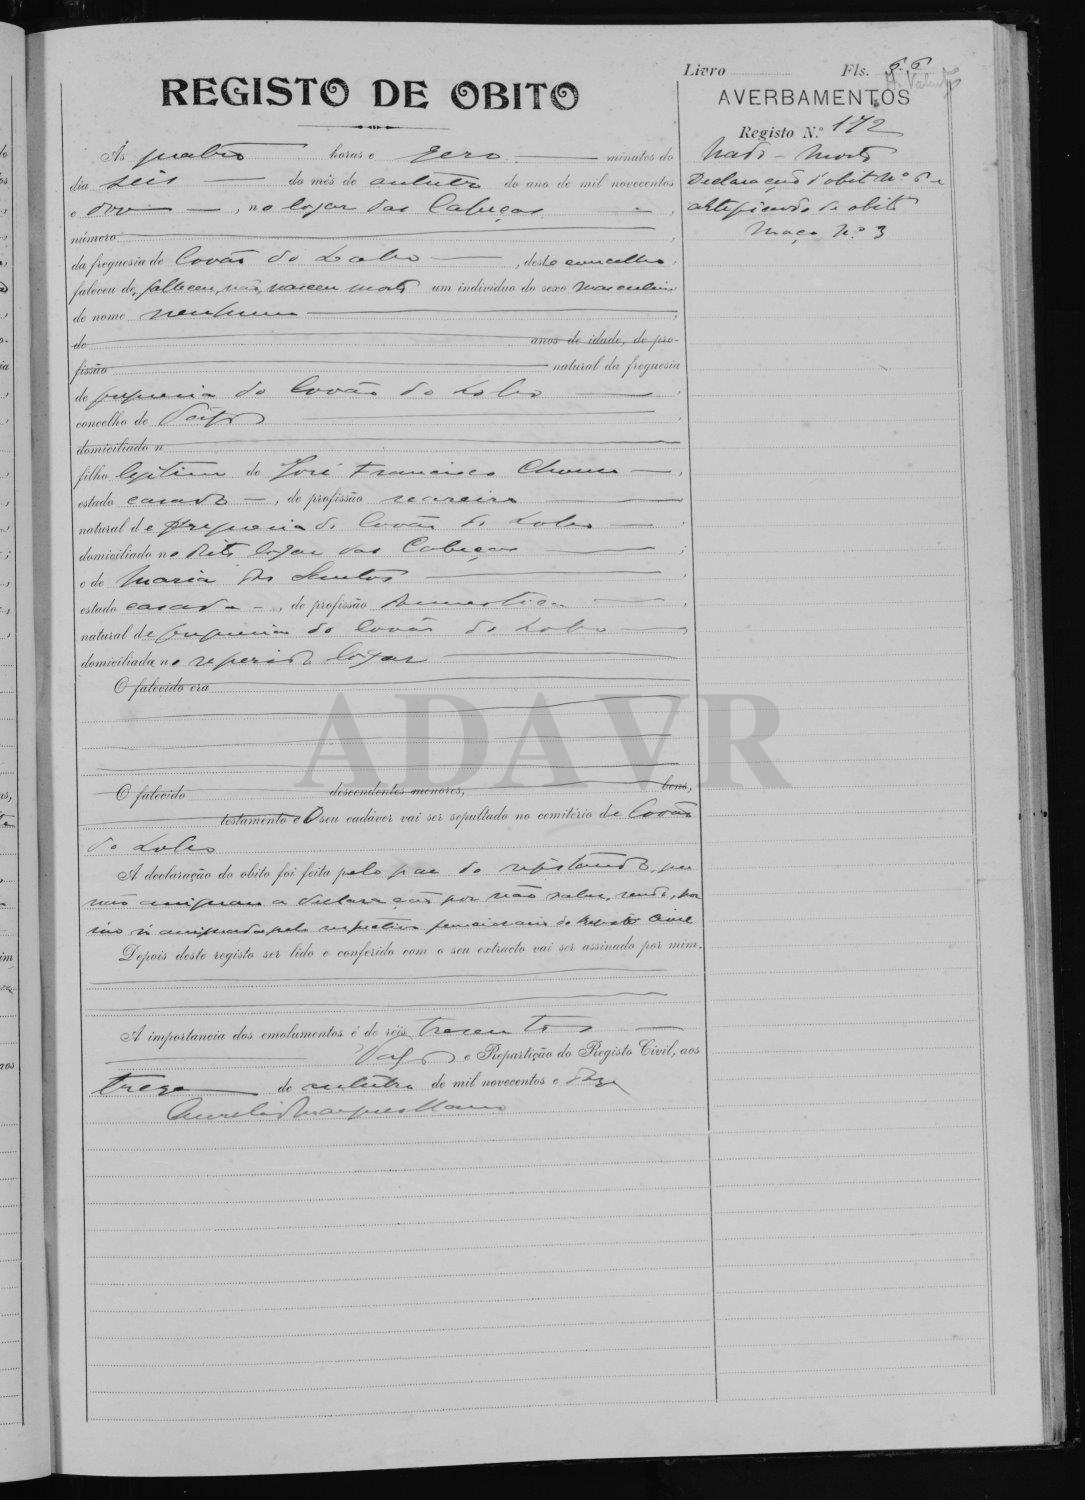 Livro Fls. 66
REGISTO DE OBITO
AVERBAMENTOS
Registo N.º 172
Nado-morto
Declaração d'obito Nº 6 e
certificado de obito
Maço Nº 3
Ás quatro horas e zero minutos do
dia seis do mês de outubro do ano de mil novecentos
e doze, no logar das Cabeças,
número
da freguesia de Covão do Lobo, deste concelho,
faleceu de, falleceu, não, nasceu morto um individuo do sexo masculino
de nome nenhum
de anos de idade, de pro-
fissão natural da freguesia
de freguesia do Covão do Lobo
concelho de Vagos
domiciliado n
filho legitimo de José Francisco
estado casado, de profissão seareiro
natural de freguesia do Covão do Lobo
domiciliado no dito logar das Cabeças;
e de Maria dos Santos
estado casada, de profissão domestica
natural de freguesia do Covão do Lobo
domiciliada no referido logar
O falecido era
ADAVR
O falecido descendentes menores, bens,
testamento e O seu cadáver vai ser sepultado no cemitério de Covão
do Lobo
A declaração do obito foi feita pelo pae do registando, que
não assignou a declaração por não saber, sendo, por
isso só assignada pelo respectivo funcionario do Registo Civil
Depois deste registo ser lido e conferido com o seu extracto vai ser assinado por mim.
A importancia dos emolumentos é de réis trezentos
Vagos e Repartição do Registo Civil, aos
treze de outubro de mil novecentos e doze
Aurelio Marques Mano